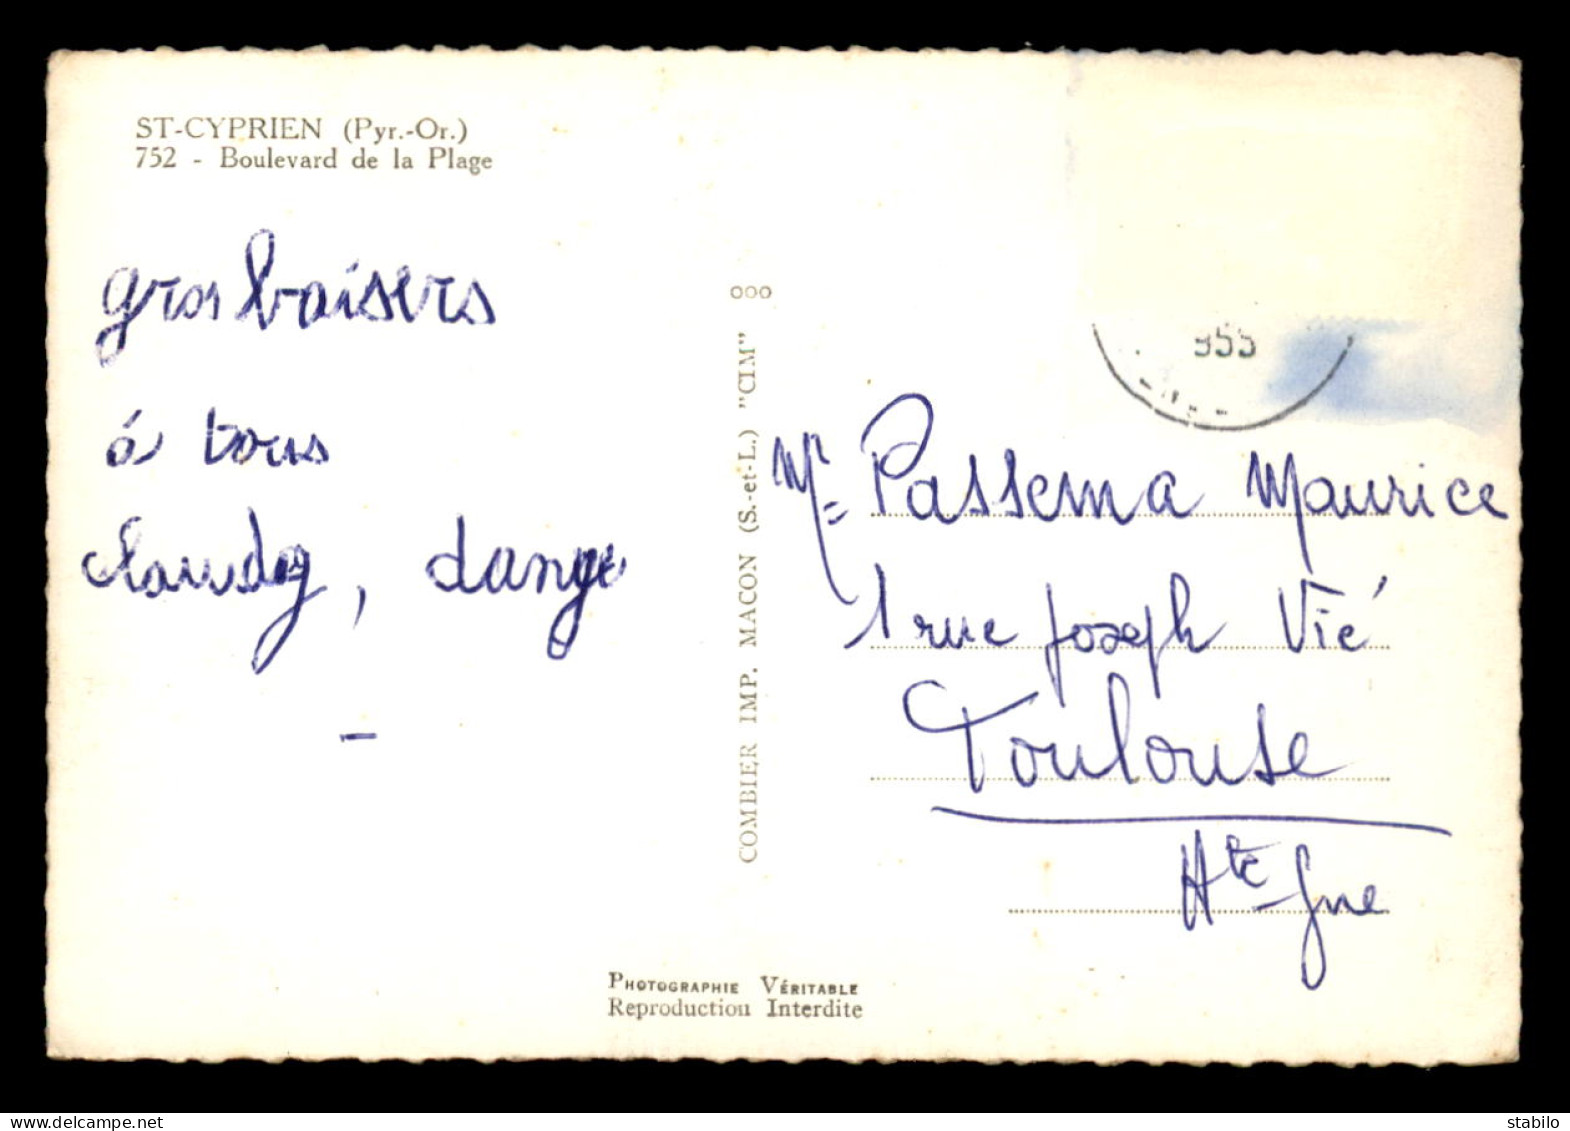 ST-CYPRIEN (Pyr.-Or.)
752 - Boulevard de la Plage
gros baisers
à tous
COMBIER IMP. MACON (S.-et-L.) "CIM"
ooo
955
Mr Passema Maurice
1 rue Joseph Vié
Toulouse
Hte-Gne
PHOTOGRAPHIE VÉRITABLE
Reproduction Interdite
delcampe.net
stabilo